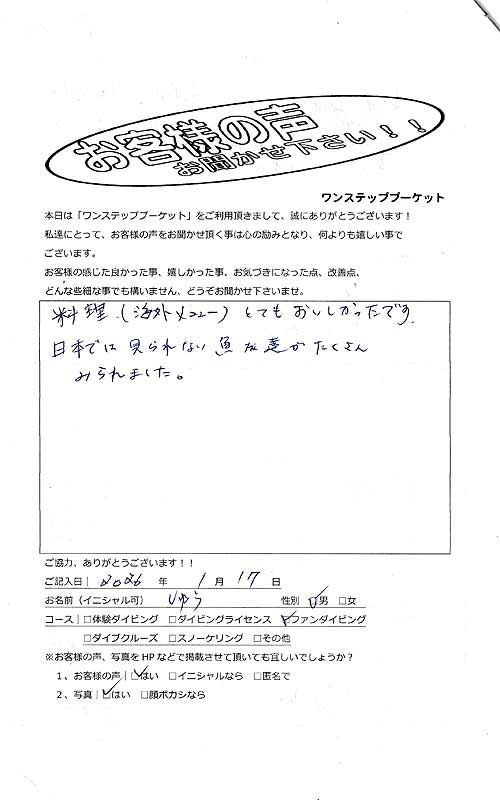 お客様の声
お聞かせ下さい！！
ワンステッププーケット
本日は「ワンステッププーケット」をご利用頂きまして、誠にありがとうございます！
私達にとって、お客様の声をお聞かせ頂く事は心の励みとなり、何よりも嬉しい事で
ございます。
お客様の感じた良かった事、嬉しかった事、お気づきになった点、改善点、
どんな些細な事でも構いません、どうぞお聞かせ下さいませ。
料理(海外メニュー)とてもおいしかったです.
日本では見られない魚友達がたくさん
みられました。
ご協力、ありがとうございます！！
ご記入日｜ 2026 年 1 月 17 日
お名前（イニシャル可） しゅう 性別 ☑男 □女
コース｜□体験ダイビング □ダイビングライセンス ☑ファンダイビング
□ダイブクルーズ □スノーケリング □その他
※お客様の声、写真をHPなどで掲載させて頂いても宜しいでしょうか？
1、お客様の声｜☑はい □イニシャルなら □匿名で
2、写真｜☑はい □顔ボカシなら